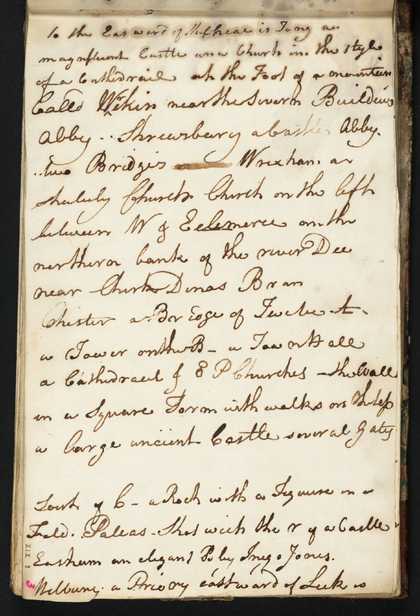 to the Eastward of Micheal is Tong a
magnificent Castle and Church in the style
of a Cathedrall at the Foot of a mountain
Calld Wrekin near the Severn Buildwas
Abby .. Shrewsbury a Castle Abby
.. two Bridges Wrexham a
stately Church Church on the left
between W & Eelemere on the
northeron bank of the river Dee
near Dinas Bran
Chester a Bridge of Twelve A
a Tower on the B - a Town Hall
a Cathedrael & 8 P Churches - the Wall
in a Square Form with walks on the top
a large ancient Castle several Gates
South of C - a Rock with a Figuure in a
Field. Paleas. with the r of a Castle
Eastham an elegant B by Inigo Jones.
a Priory eastward of Leek is